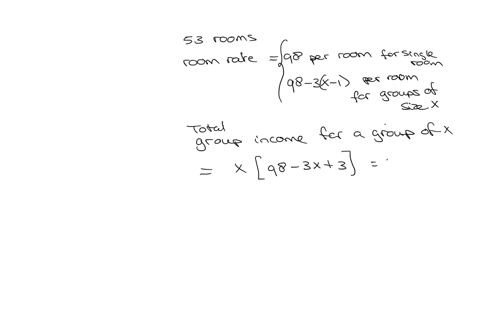 53 rooms
room rate = { 98 per room for single room
98-3(x-1) per room for groups of size x
Total
group income for a group of x
= x [98-3x+3] =